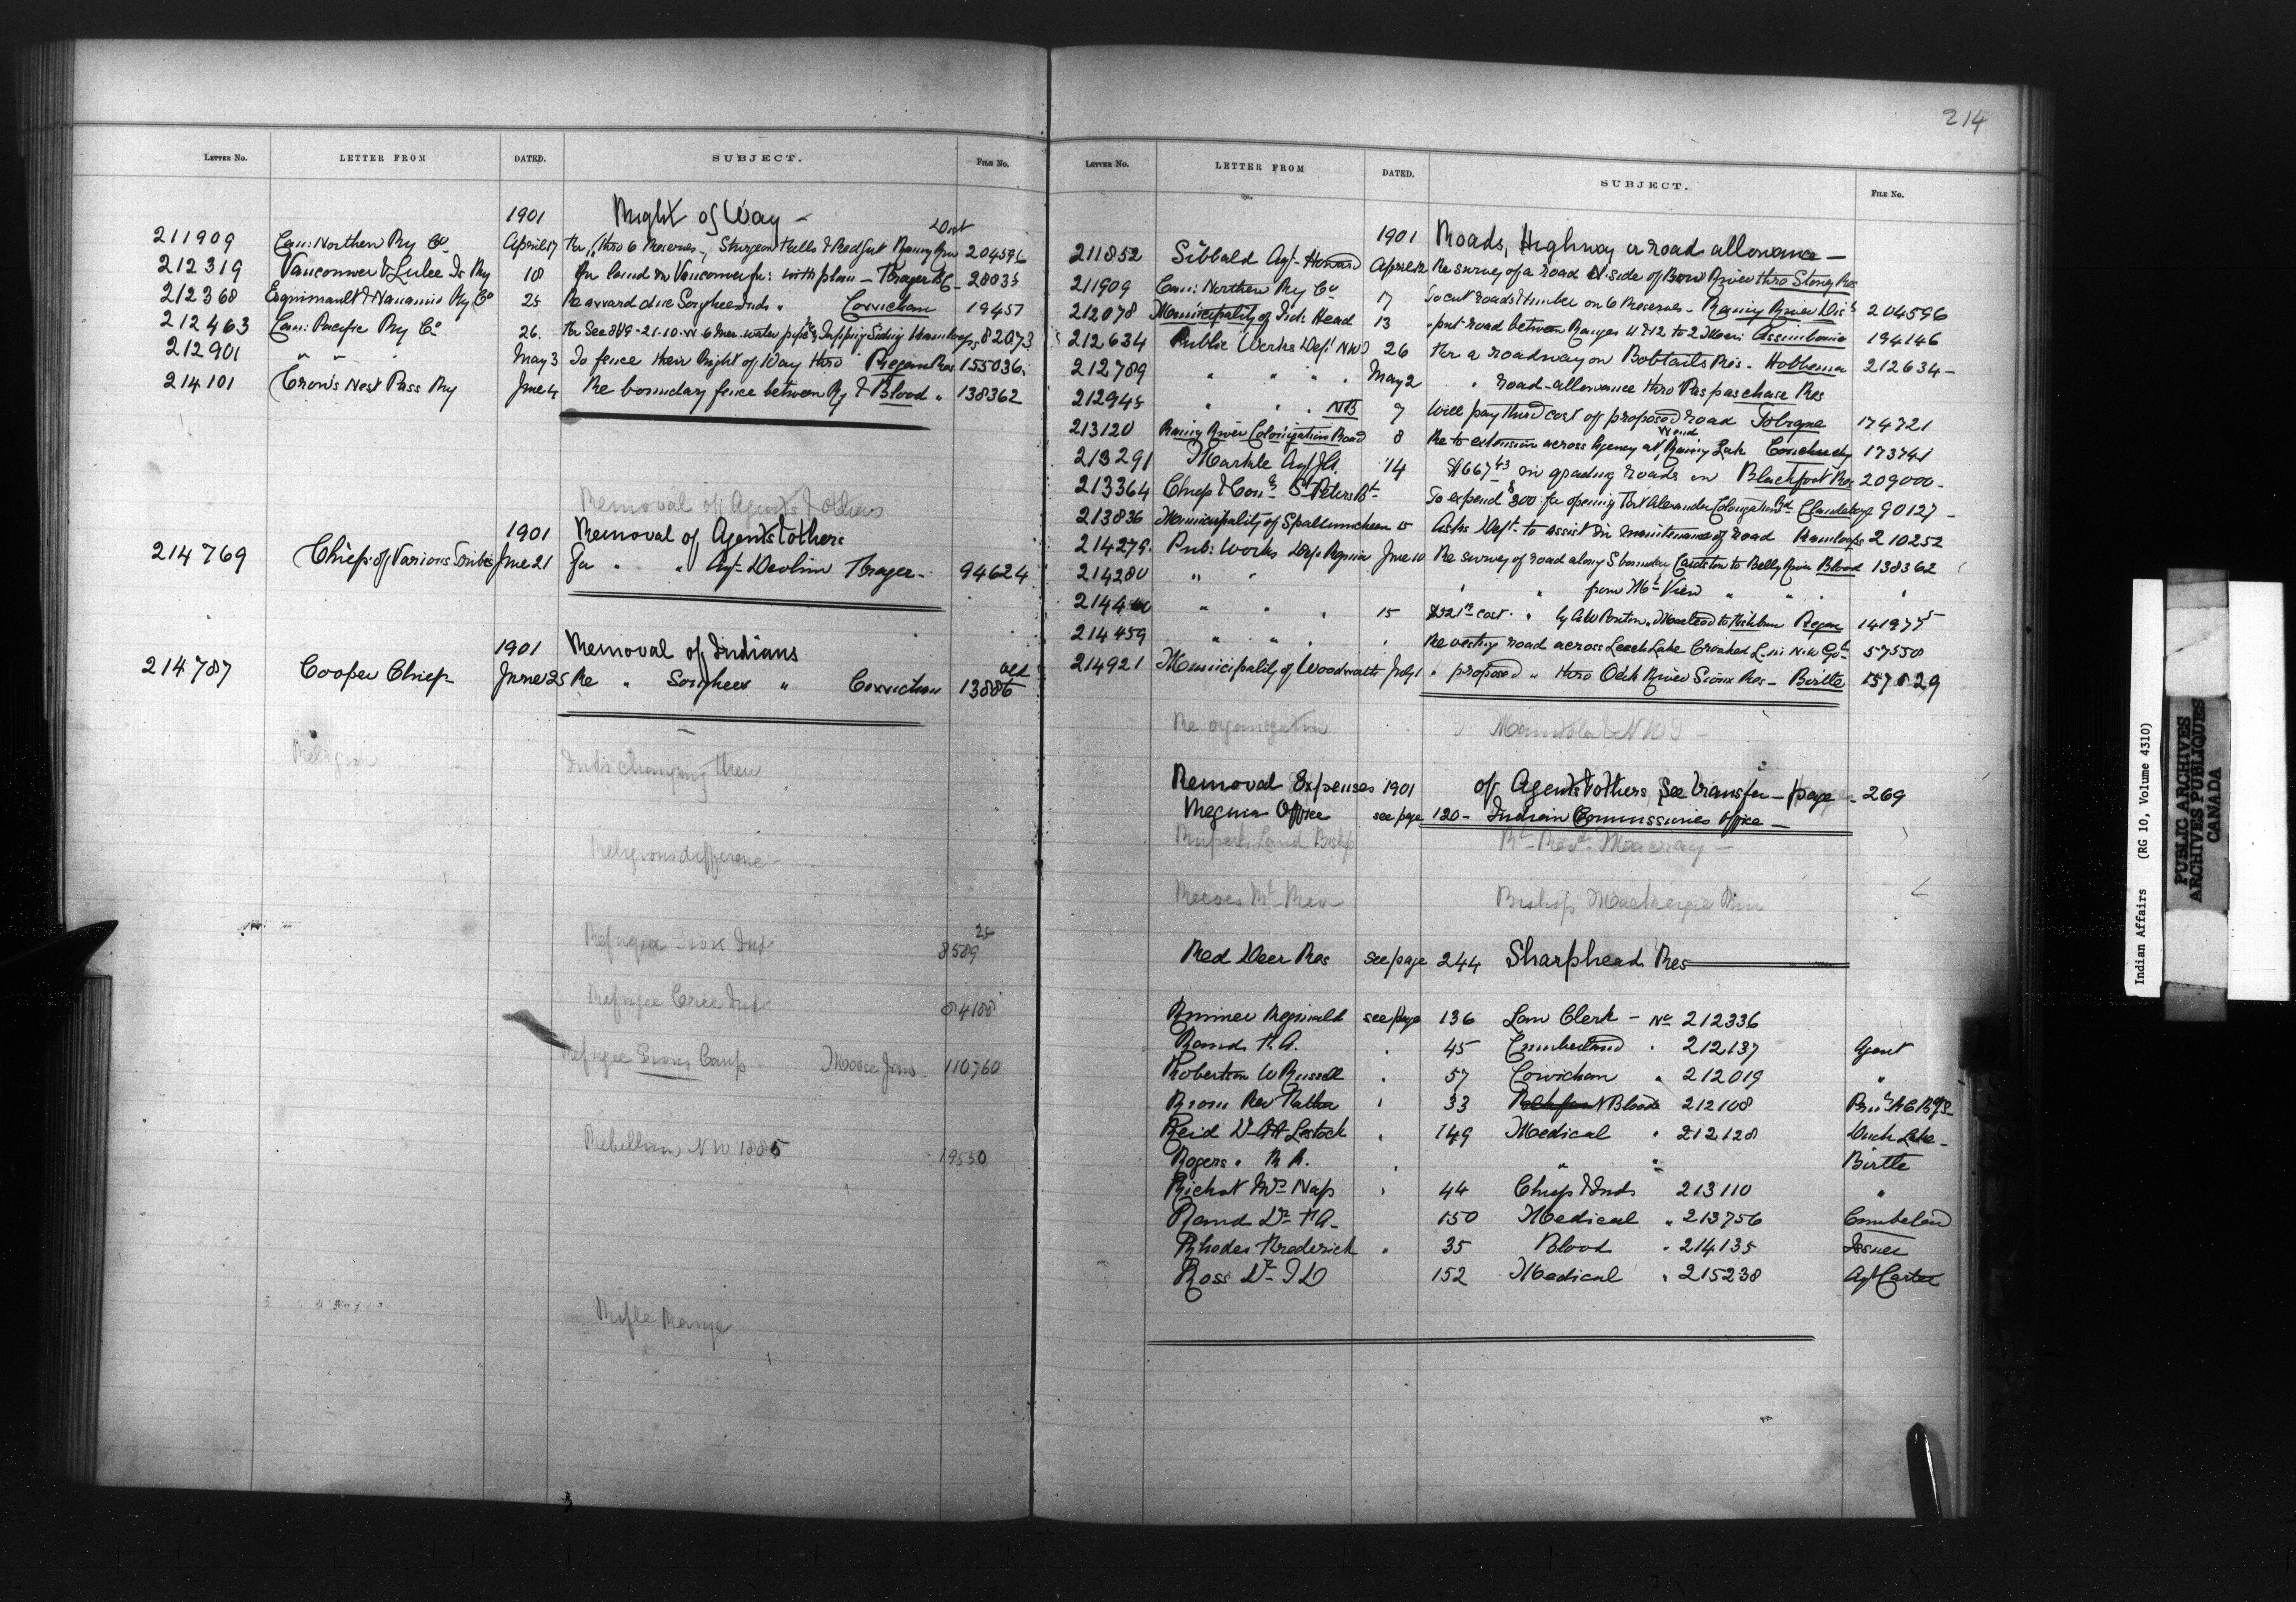 LETTER NO. LETTER FROM DATED. SUBJECT. FILE No.
1901 Right of Way —
211909 Can: Northern Ry Co April 17 For " thro 6 Reserves, Sturgeon Falls & Rainy River Dist 204596
212319 Vancouver & Lulu Is Ry 18 For land in Vancouver for: with plan — Fraser BC — 28035
212368 Esquimault & Nanaimo Ry Co 25 Re award due Songhees Inds " Cowichan 19457
212463 Can: Pacific Ry Co 26. For Sec 8 & 9-21-10-W 6 Mer. water pipe & Siding Kamloops 82073
212901 " " " May 3 To fence their Right of Way thro Piegan Res 155036
214101 Crow's Nest Pass Ry June 4 Re boundary fence between Ry & Blood " 138362
Removal of Agents & others
1901 Removal of Agents & others
214769 Chiefs of Various Tribes June 21 For " " Agt Devlin Fraser — 94624
1901 Removal of Indians
214787 Cooper Chief — June 25 Re " Songhees " Cowichan 13886 old
Religion Inds changing their
Religious difference —
Refugee Sioux Inds 8589 25
Refugee Cree Inds 84188
Refugee Sioux Camp — Moose Jaw. 110760
Rebellion NW 1885 19550
Rifle Range
214
LETTER NO. LETTER FROM DATED. SUBJECT. FILE No.
1901 Roads, Highway or road allowance —
211852 Sibbald Agt — Howard April 12 Re survey of a road N. side of Bow River thro Stony Res
211909 Can: Northern Ry Co 17 To cut roads & timber on 6 Reserves — Rainy River Dist 204596
212078 Municipality of Ind: Head 13 " put road between Ranges 11 & 12 to 2 Meri: Assiniboine 194146
212634 Public Works Dept NWT 26 For a roadway on Bobtails Res. Hobbema 212634 —
212789 " " " " May 2 " road-allowance thro Paspaschase Res
212945 " " " NB 7 Will pay third cost of proposed road Tobique 174721
213120 Rainy River Colonization Road 8 Re to extension across Agency at Rainy Lake Coucheching 173741
213291 Markle Agt J.A. 14 $667.43 in grading roads in Blackfoot Res 209000 —
213364 Chief & Coun: St Peters Bd To expend $300 for opening Fort Alexander Colonization Rd Clandeboye 90127 —
213836 Municipality of Spallumcheen 15 Asks Dept. to assist in maintenance of road Kamloops 210252
214279. Pub: Works Dep Regina June 10 Re survey of road along S boundary Cardston to Belly River Blood 138362
214280 " " " " from Mt View " " " "
214460 " " " 15 cost " by A W Ponton, Macleod to Piegan 141977 5
214459 " " " " Re vesting road across Leech Lake Crooked L. in N.W. Govt 57550
214921 Municipality of Woodworth July 1 " proposed " thro Oak River Sioux Res — Birtle 157029
Re organization Manitoba & NWT —
Removal Expenses 1901 of Agents & others, See transfer — page — 269
Regina Office see page 120 — Indian Commissioners Office —
Ruperts Land Bishop Rt Revd. Macray —
Reeves Rt Rev Bishop Mackenzie Riv
Red Deer Res see page 244 Sharphead Res
Rimmer Reginald see page 136 Law Clerk — No 212336
Rands F.A. " 45 Cumberland " 212137 Agent
Robertson W Russell " 57 Cowichan " 212019 "
Riou Rev Father " 33 Blackfoot Blood 212108
Reid Dr A H Lestock " 149 Medical " 212128 Duck Lake —
Rogers " R A. " " " Birtle
Richot Mrs Nap " 44 Chief & Inds 213110 "
Rand Dr F A — 150 Medical " 213756 Cumberland
Rhodes Frederick " 35 Blood " 214135 Issuer
Ross Dr J D 152 Medical " 215238 Agt Carter
Indian Affairs (RG 10, Volume 4310)
PUBLIC ARCHIVES
ARCHIVES PUBLIQUES
CANADA